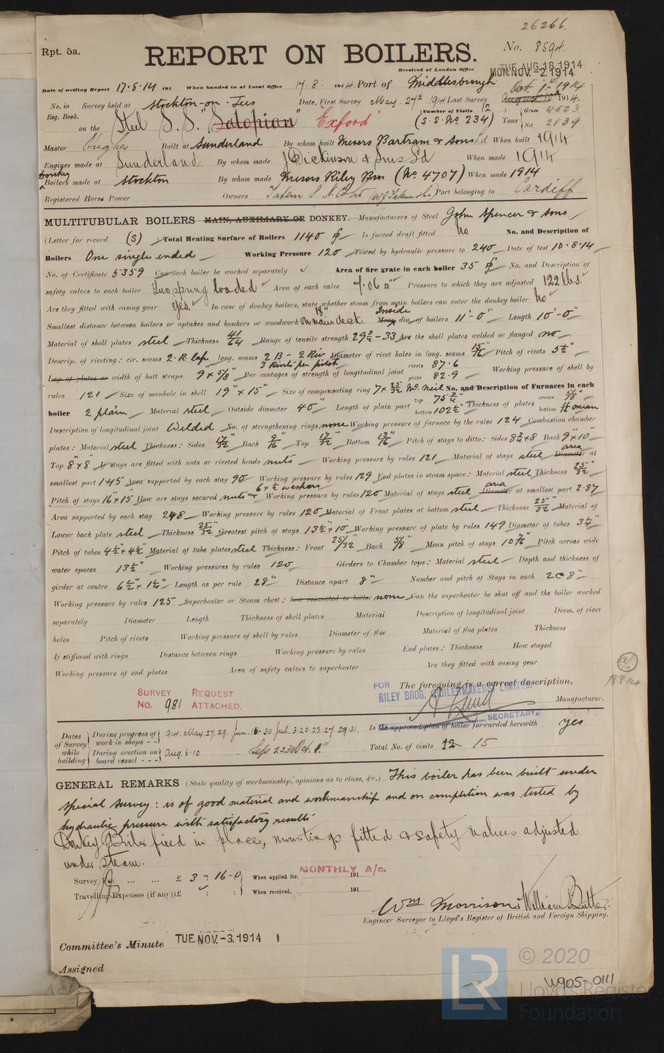 26266.
Rpt. 5a.
REPORT ON BOILERS.
No. 8594.
Received at London Office TUE. AUG. 18. 1914
MON. NOV. -2. 1914
Date of writing Report 17.8.14 191 When handed in at Local Office 17 8. 1914 Port of Middlesbrough
No. in Survey held at Stockton-on-Tees Date, First Survey May. 27th 1914 Last Survey Oct. 1st 1914
Reg. Book. (Number of Visits 12
on the Steel S.S. "Salopian" "Exford" (S.S. No. 234) Tons Gross 4503 Net 2839
Master Built at Sunderland By whom built Messrs Bartram & Sons Ld When built 1914
Engines made at Sunderland By whom made J Dickinson & Sons Ld When made 1914
Donkey Boilers made at Stockton By whom made Messrs Riley Bros (No. 4707) When made 1914
Registered Horse Power Owners Tatem S. N. Co Ld Port belonging to Cardiff
MULTITUBULAR BOILERS MAIN, AUXILIARY OR DONKEY. Manufacturers of Steel John Spencer & Sons
(Letter for record (S) Total Heating Surface of Boilers 1140 Is forced draft fitted No No. and Description of
Boilers One single ended Working Pressure 120 Tested by hydraulic pressure to 240 Date of test 10.8.14
No. of Certificate 5359 Can each boiler be worked separately Area of fire grate in each boiler 35 No. and Description of
safety valves to each boiler Two spring loaded Area of each valve 7.06 Pressure to which they are adjusted 122 lbs.
Are they fitted with easing gear Yes In case of donkey boilers, state whether steam from main boilers can enter the donkey boiler No
Smallest distance between boilers or uptakes and bunkers or woodwork 18" on main deck Inside dia. of boilers 11'-0" Length 10'-0"
Material of shell plates steel Thickness 41/64 Range of tensile strength 29½-33 Are the shell plates welded or flanged no
Descrip. of riveting: cir. seams 2.R Lap long. seams 2 B - 2 Riv 3 Rivets per pitch Diameter of rivet holes in long. seams 15/16 Pitch of rivets 5½"
Lap of plates or width of butt straps 9 x 5/8 Per centages of strength of longitudinal joint rivets 87.6 plate 82.9 Working pressure of shell by
rules 121 Size of manhole in shell 19" x 15" Size of compensating ring 7 x 25/32 McNeil No. and Description of Furnaces in each
boiler 2 plain Material steel Outside diameter 40" Length of plain part top 75¾ bottom 102½ Thickness of plates crown 5/8" bottom
Description of longitudinal joint Welded No. of strengthening rings none Working pressure of furnace by the rules 124 Combustion chamber
plates: Material steel Thickness: Sides 17/32 Back 9/16 Top 17/32 Bottom 13/16 Pitch of stays to ditto: Sides 8¾ x 8 Back 9 x 10
Top 8 x 8 If stays are fitted with nuts or riveted heads nuts Working pressure by rules 121 Material of stays steel area Diameter at
smallest part 1.45 Area supported by each stay 90 Working pressure by rules 129 End plates in steam space: Material steel Thickness 25/32
Pitch of stays 16 x 15 How are stays secured nuts & washers Working pressure by rules 120 Material of stays steel area Diameter at smallest part 2.87
Area supported by each stay 248 Working pressure by rules 120 Material of Front plates at bottom steel Thickness 25/32 Material of
Lower back plate steel Thickness 25/32 Greatest pitch of stays 13½ x 10 Working pressure of plate by rules 149 Diameter of tubes 3¼"
Pitch of tubes 4½ x 4½ Material of tube plates steel Thickness: Front 25/32 Back 5/8" Mean pitch of stays 10⅞ Pitch across wide
water spaces 13½" Working pressures by rules 120 Girders to Chamber tops: Material steel Depth and thickness of
girder at centre 6½" x 1¼" Length as per rule 28" Distance apart 8" Number and pitch of Stays in each 2 @ 8"
Working pressure by rules 125 Superheater or Steam chest: how connected to boiler none Can the superheater be shut off and the boiler worked
separately Diameter Length Thickness of shell plates Material Description of longitudinal joint Diam. of rivet
holes Pitch of rivets Working pressure of shell by rules Diameter of flue Material of flue plates Thickness
If stiffened with rings Distance between rings Working pressure by rules End plates: Thickness How stayed
Working pressure of end plates Area of safety valves to superheater Are they fitted with easing gear
SURVEY REQUEST
No. 981 ATTACHED.
The foregoing is a correct description,
FOR RILEY BROS. (BOILERMAKERS) LIMITED.
SECRETARY.
Manufacturer.
18.8.14
Dates of Survey while building
During progress of work in shops - - 914. May. 27. 29. Jun. 16. 30. Jul. 3. 20. 23. 27. 29. 31.
During erection on board vessel - - - Aug. 6. 10
Is the approved plan of boiler forwarded herewith yes
Total No. of visits 12 15
GENERAL REMARKS (State quality of workmanship, opinions as to class, &c.) This boiler has been built under
special survey: is of good material and workmanship and on completion was tested by
hydraulic pressure with satisfactory results
Donkey Boiler fixed in place, mountings fitted & safety valves adjusted
under steam.
Survey Fee ... ... ... £ 3 : 16 : 0 When applied for, MONTHLY A/c. 191
Travelling Expenses (if any) £ : : When received, 191
Wm Morrison & William Butler
Engineer Surveyor to Lloyd's Register of British and Foreign Shipping.
Committee's Minute TUE. NOV. -3. 1914
Assigned
© 2020
LR
Lloyd's Register
Foundation
W905-0111